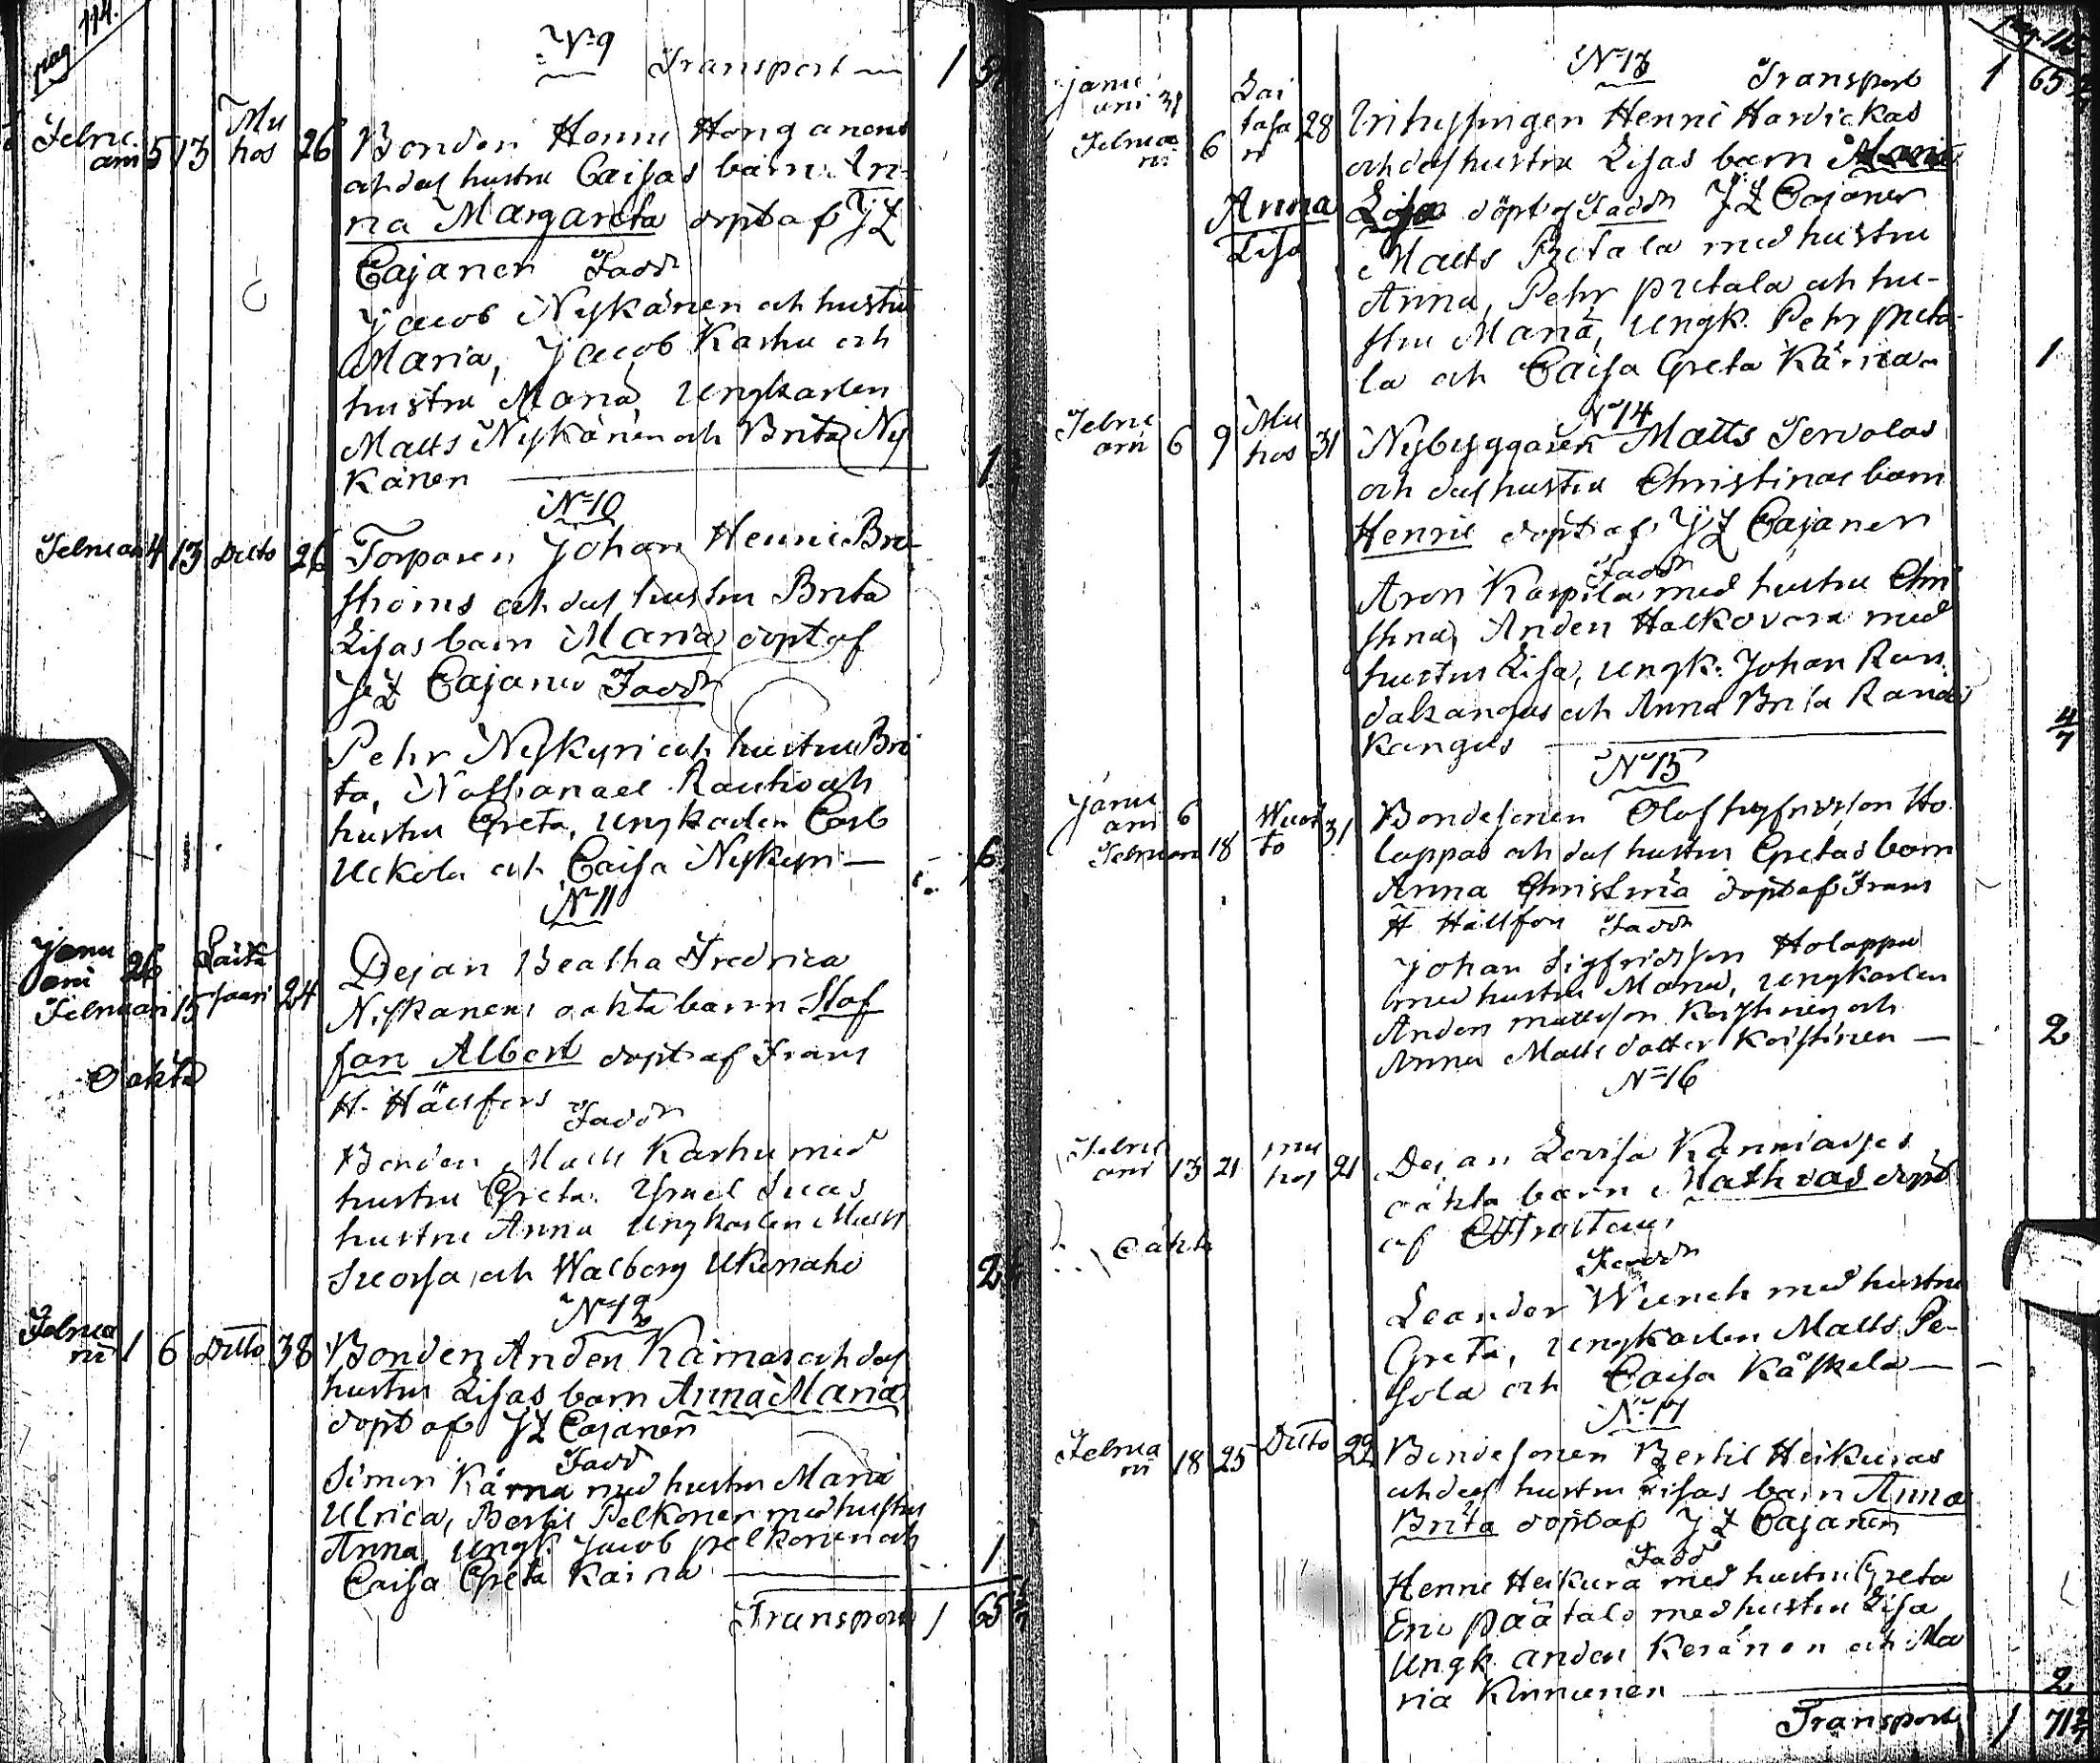 pag. 114.
N:9
Transport — 1
Februari 5 13 Muhos 26 Bonden Henric Honganens
och dess hustru Caisas barn An-
na Margareta döpt af J Z
Cajanen Fadd
Jacob Nyskänen och hustru
Maria, Jacob Karhu och
hustru Maria, Ungkarlen
Matts Nyskänen och Brita Nys
känen 1
N:10
Februari 4 13 Ditto 26 Torparen Johan Henric Bro-
ströms och dess hustru Brita
Lisas barn Maria döpt af
J Z Cajanus Fadd
Pehr Nyskyri och hustru Bri
ta, Nathanael Rautio och
hustru Greta, Ungkarlen Carl
Uckola och Caisa Nyskyri — 6
N:11
Januari 26
Februari 15 Laitasaari 24
Oäkta
Dejan Beatha Fredrica
Niskanens oäkta barn Staf
fan Albert döpt af Frans
H. Hällfors Fadd
Bonden Matts Karhu med
hustru Greta. Israel Sucas
hustru Anna Ungkarlen Matts
Sucosa och Walborg Ukonaho 2
N:12
Februari 1 6 Ditto 38 Bonden Anders Kärnas och dess
hustru Lisas barn Anna Maria
döpt af J Z Cajanen
Fadd
Simon Kärna med hustru Maria
Ulrica, Bertil Pelkonen med hustru
Anna, Ungk. Jacob pelkonen och
Caisa Greta Kärna 1
Transport 1 65
pag. 115
N:13
Transport 1 65
Januari 31
Februari 6 28
Inhysingen Henric Hardickas
och dess hustru Lisas barn Maria
Anna Lisa döpt Fadd J Z Cajanen
Lisa
Matts Pietala med hustru
Anna, Pehr pietala och hu-
stru Maria, Ungk. Pehr pieta-
la och Caisa Greta Kärna 1
N:14
Februari 6 9 Muhos 31 Nybyggaren Matts Servolas
och dess hustru Christinas barn
Henric döpt af J Z Cajanen
Fadd
Aron Karpila med hustru Chri
stina, Anders Halkovara med
hustru Lisa, Ungk. Johan Ran
dakangas och Anna Brita Randa
kangas 4/7
N:15
Januari 6
Februari 18 Wuotto 31 Bondesonen Olof Sigfridsson Ho
lappas och dess hustru Gretas barn
Anna Christina döpt af Frans
H Hällfors Fadd
Johan Sigfridsson Holappa
med hustru Maria, Ungkarlen
Anders mattsson Koistinen och
Anna Mattsdotter Koistinen — 2
N:16
Februari 13 21 Muhos 21
oäkta
Dejan Lovisa Kanniaises
oäkta barn Mathias döpt
af
Fadd
Leander Wunsch med hustru
Greta, Ungkarlen Matts Pe-
sola och Caisa Käskela —
N:17
Februari 18 25 Ditto 22 Bondesonen Bertil Heikuras
och dess hustru Lisas barn Anna
Brita döpt af J Z Cajanen
Fadd
Henric Heikura med hustru Greta
Eric päätalo med hustru Lisa
Ungk anders Keränen och Ma
ria Kinnunen 2
Transport 1 71 2/7